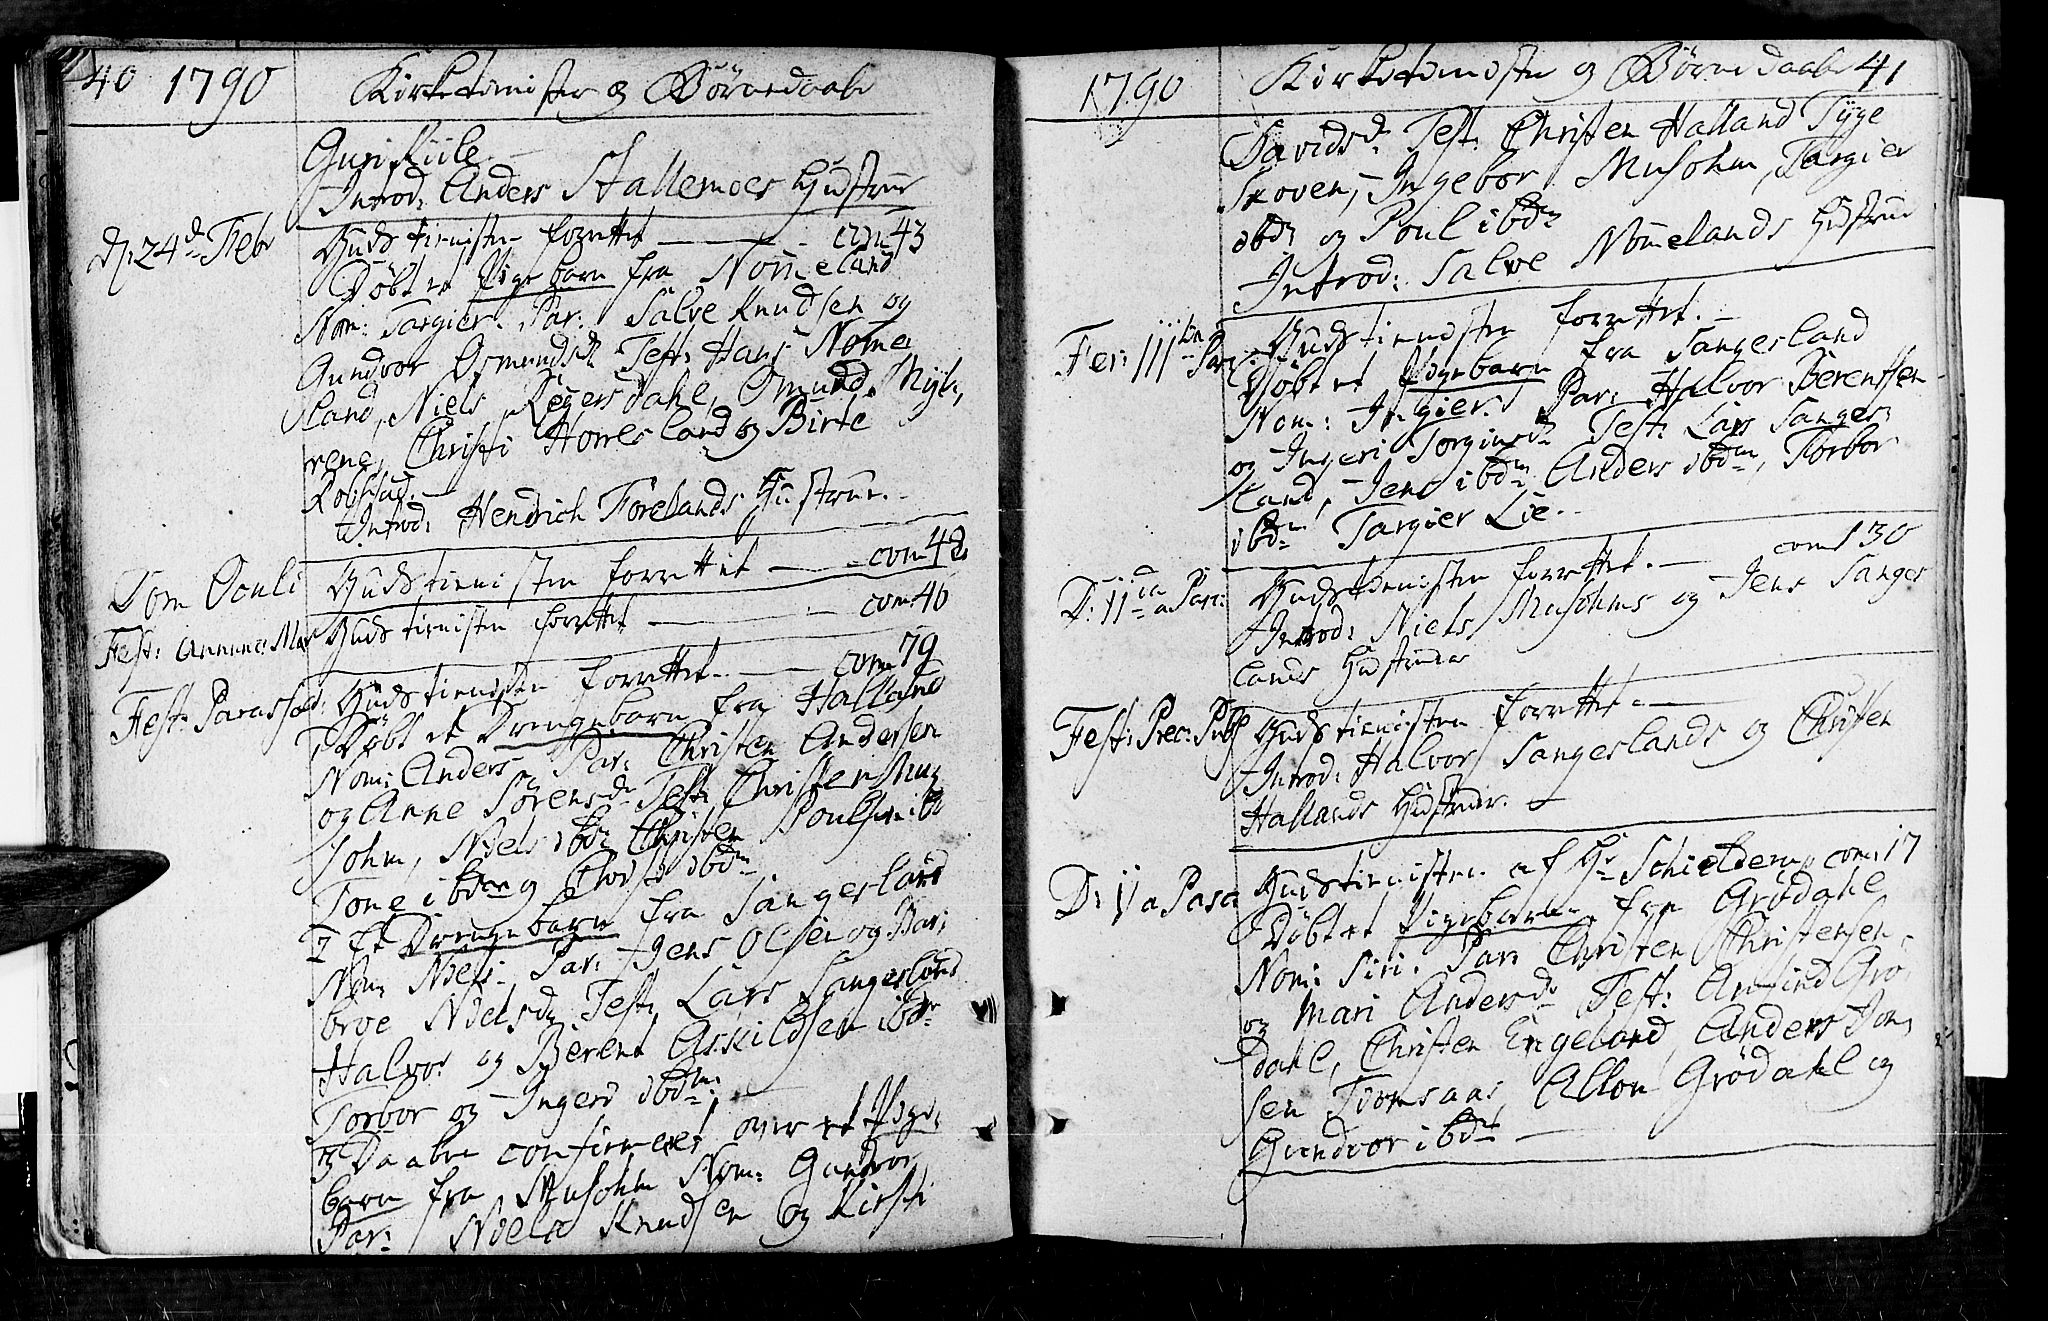 40 1790 Kirketienister og Børnedaabe
Guri Kiile
Introd: Anders Stallemoes Hustrue
D: 24de Febr Gudstienisten forrettet com 43
Døbt et Pigebarn fra Nomeland
Nom: Targier. Par: Salve Knudsen og
Gundvor Osmundsd. Test: Hans Nome
land, Niels Røgersdahl, Omund Myh
rene, Christi Horresland og Birte
Robstad.
Introd: Hendrich Førelands Hustrue.
Dom Oculi Gudstienisten forrettet com 42
Fest: Annunc: Mar Gudstienisten forrettet com: 46
Fest: Parassed: Gudstienisten forrettet com 79
Døbt et Drengebarn fra Halland
Nom: Anders Par: Christen Andersen
og Anne Sørensd. Test: Christen Mus
johm, Niels ibd: Christen Poulsen ib
Tone ibdm og ibdm
Et Drengebarn fra Sangesland
Nom: Niels. Par: Jens Olsen og Bar:
broe Nielsd. Test: Lars Sangesland
Halvor og Berent Askildsen ibdm
Torbor og Ingerd ibdm:
Daaben confirmeret over et Pige
barn fra Musohm Nom: Gundvor
Par: Niels Knudsen og Kirsti
1790 Kirketienister og Børnedaabe 41
Davidsd. Test: Christen Halland Tyge
Skoven, Ingebor Musohm, Targier
ibdm og Poul ibdm
Introd: Salve Nomelands Hustrue
Fer: III Pas: Gudstienisten forrettet.
Døbt et Pigebarn fra Sangesland
Nom: Ingier. Par: Halvor Berentsen
og Ingeri Torgiusd. Test: Lars Sanges
land, Jens ibdm Anders ibdm, Torbor
ibdm Targier Lie.
com 130
D: II da a Pasc: Gudstienisten forrettet.
Introd: Niels Musohms og Jens Sanges
lands Hustruer
Fest: Prec: Publ Gudstienisten forrettet.
Introd: Halvor Sangeslands og Christen
Hallands Hustruer.
D: V a Pasc: Gudstienisten af Hr Schielderup com: 17
Døbt et Pigebarn fra Grødahl
Nom: Siri. Par: Christen Christensen
og Mari Andersd. Test: Arnfind Grø
dahl, Christen Engeland, Anders Jon
sen Tiomsaas, Allou Grødahl og
Gundvor ibdm